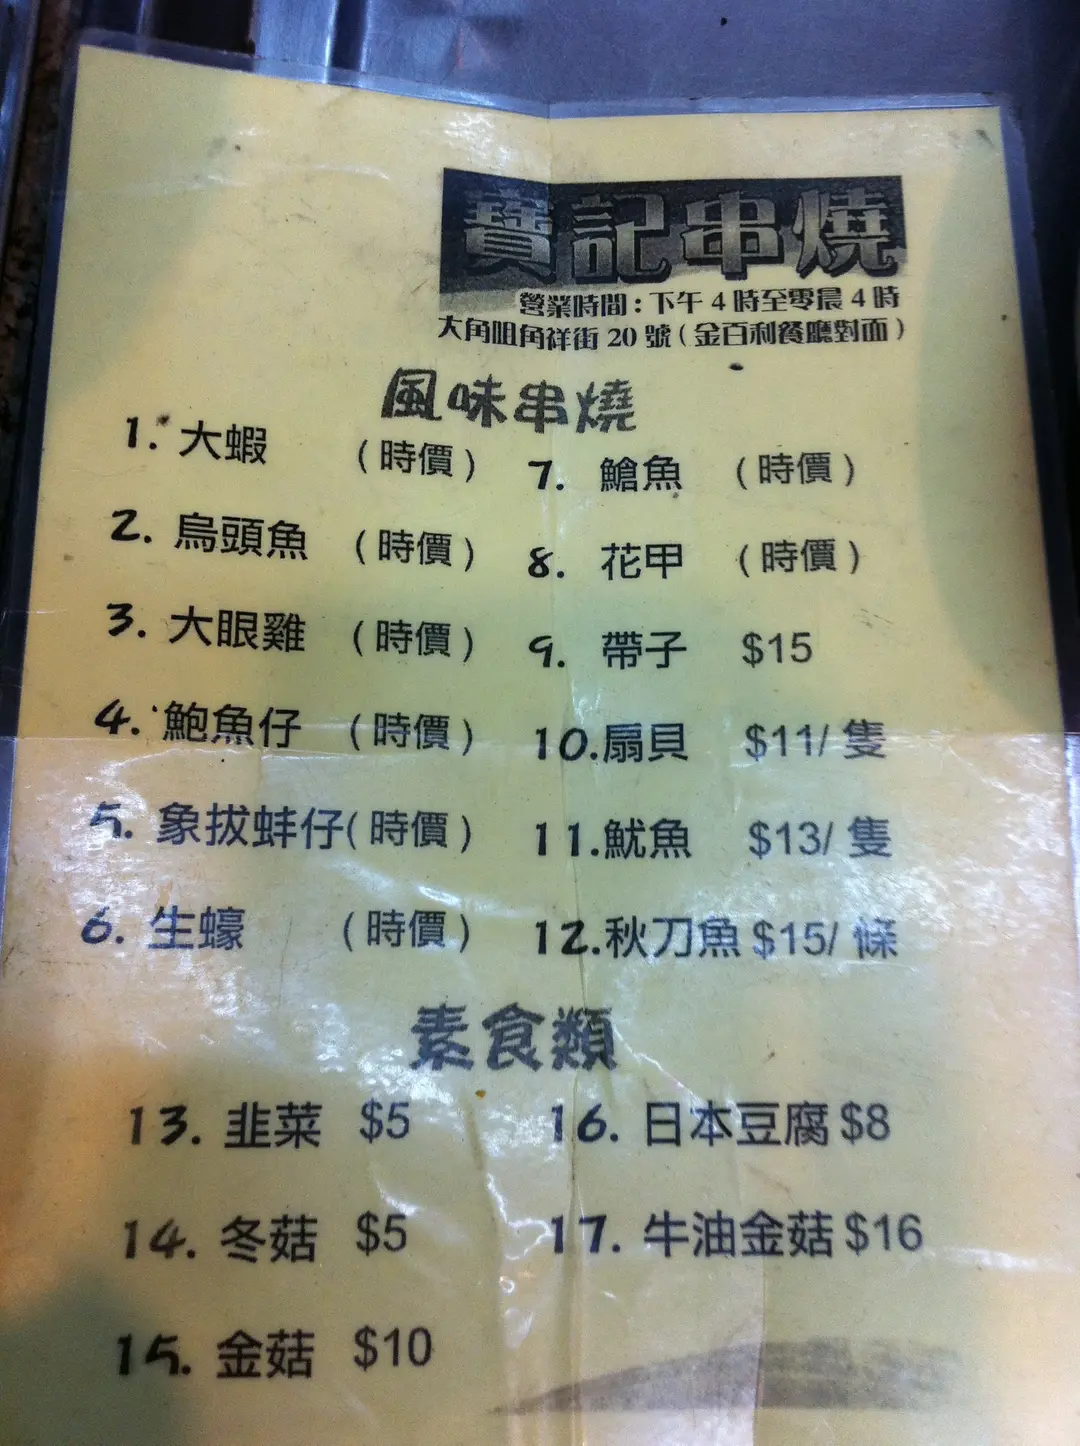 寶記串燒
營業時間：下午 4 時至零晨 4 時
大角咀角祥街 20 號（金百利餐廳對面）
風味串燒
1. 大蝦 （時價）
2. 烏頭魚 （時價）
3. 大眼雞 （時價）
4. 鮑魚仔 （時價）
5. 象拔蚌仔（時價）
6. 生蠔 （時價）
7. 鱠魚 （時價）
8. 花甲 （時價）
9. 帶子 $15
10.扇貝 $11/ 隻
11.魷魚 $13/ 隻
12.秋刀魚 $15/ 條
素食類
13. 韭菜 $5
14. 冬菇 $5
15. 金菇 $10
16. 日本豆腐 $8
17. 牛油金菇 $16